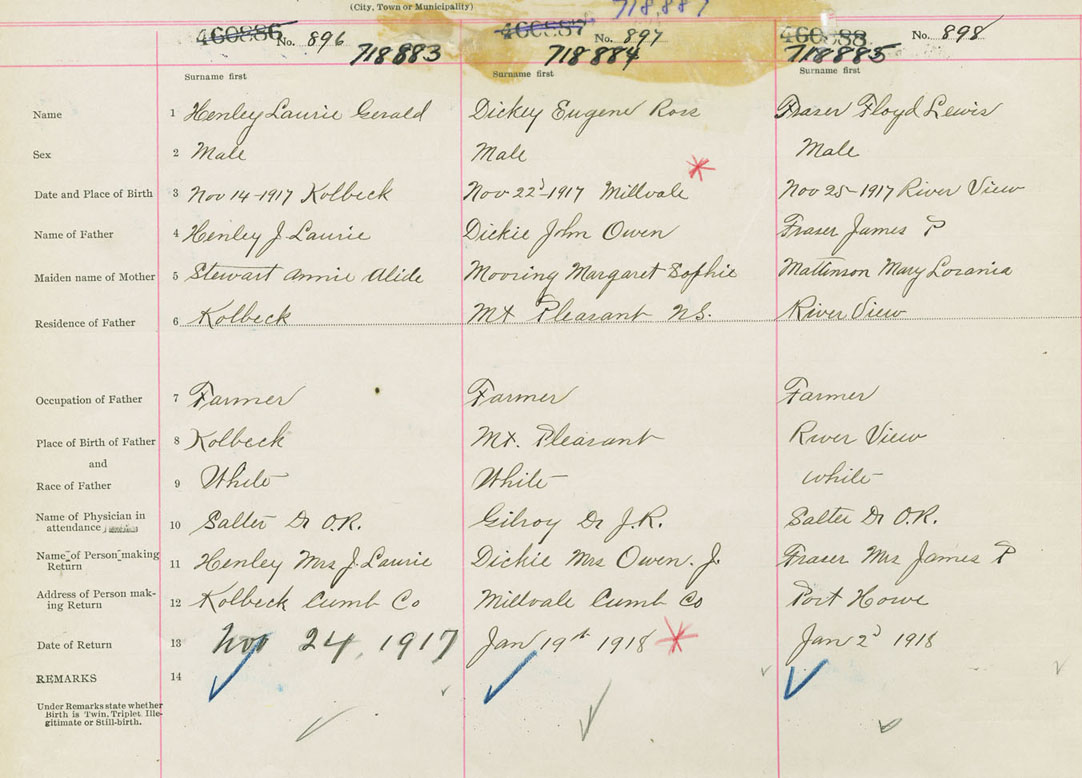 (City, Town or Municipality)
718,887
460886 No. 896 460887 No. 897 No. 898
718883 718884 718885
Surname first Surname first Surname first
Name 1 Henley Laurie Gerald Dickey Eugene Ross Fraser Floyd Lewis
Sex 2 Male Male Male
Date and Place of Birth 3 Nov 14-1917 Kolbeck Nov 22d-1917 Millvale Nov 25-1917 River View
Name of Father 4 Henley J. Laurie Dickie John Owen Fraser James P
Maiden name of Mother 5 Stewart Annie Alide Mooring Margaret Sophie Mattinson Mary Losania
Residence of Father 6 Kolbeck Mt Pleasant N.S. River View
Occupation of Father 7 Farmer Farmer Farmer
Place of Birth of Father 8 Kolbeck Mt. Pleasant River View
and
Race of Father 9 White White white
Name of Physician in
attendance 10 Salter Dr O.R. Gilroy Dr J.R. Salter Dr O.R.
Name of Person making
Return 11 Henley Mrs J. Laurie Dickie Mrs Owen. J. Fraser Mrs James P
Address of Person mak-
ing Return 12 Kolbeck Cumb Co Millvale Cumb Co Port Howe
Date of Return 13 Nov 24, 1917 Jan 19th 1918 Jan 2d 1918
REMARKS 14
Under Remarks state whether
Birth is Twin, Triplet, Ille-
gitimate or Still-birth.